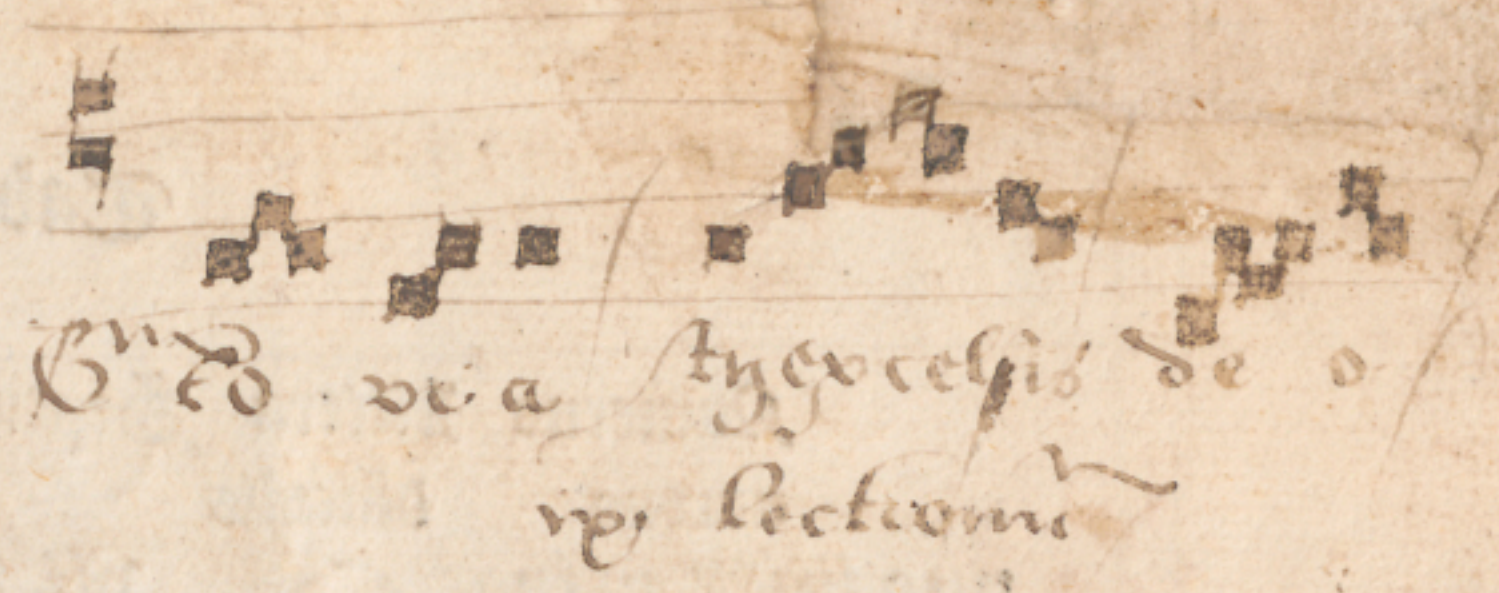 Gn to ve a in excelsis de o
ix lectionu